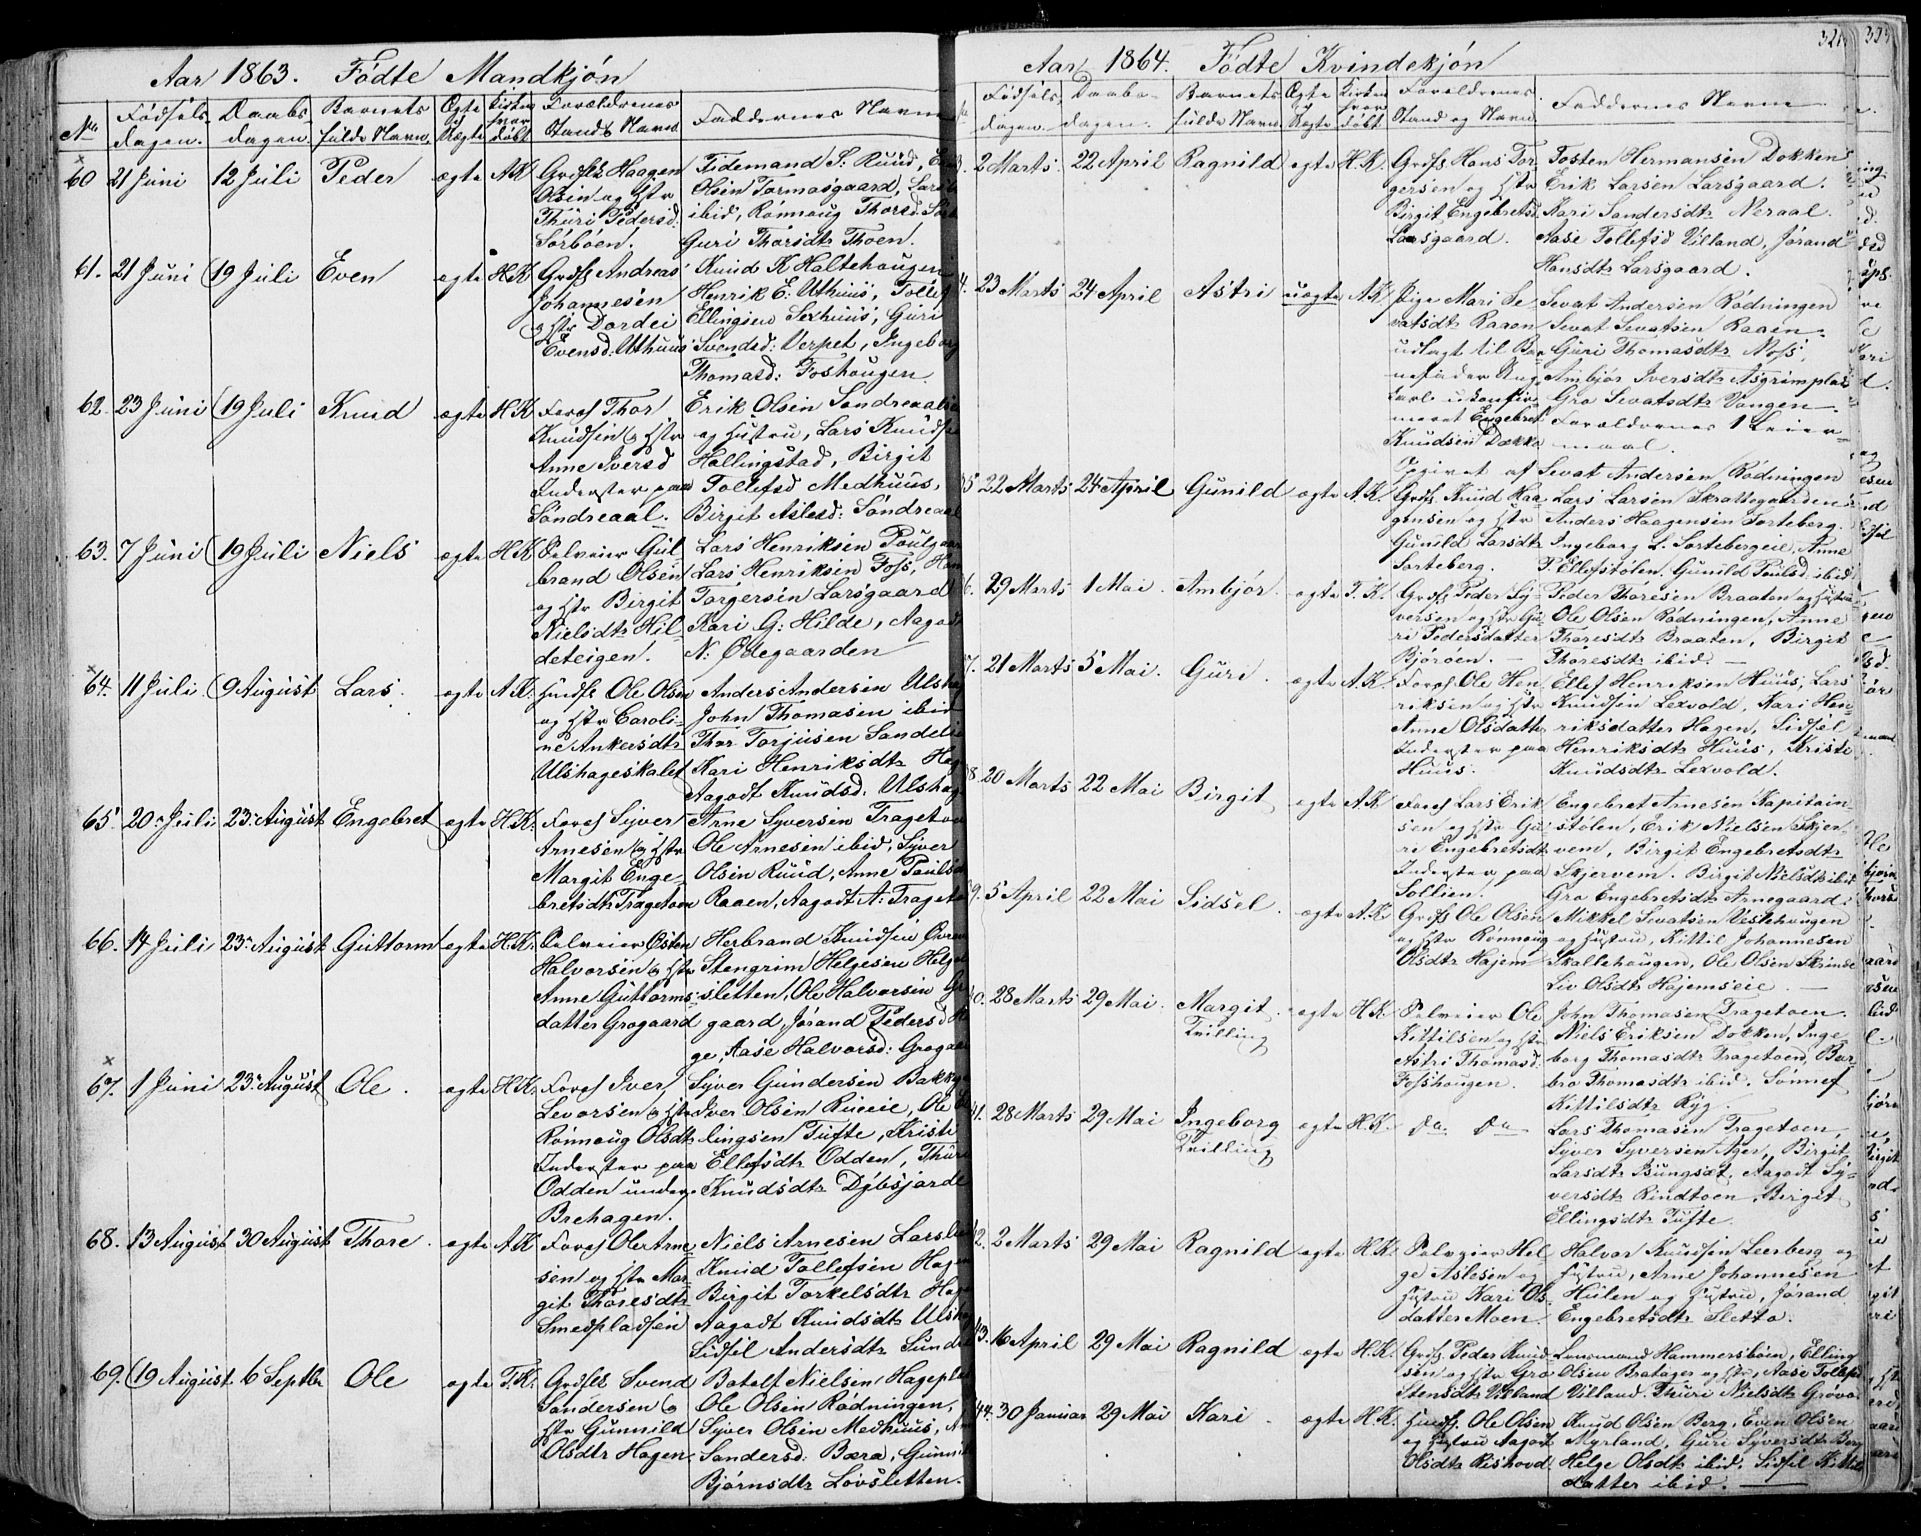 Aar 1863. Fødte Mandkjøn
No Fødsels- dagen. Daabs- dagen Barnets fulde Navn. Ægte og Uægte Kirken hvor døbt Forældrenes Stand og Navn Faddernes Navne
60 21 Juni 12 Juli Peder ægte A.K Grdfk Haagen
Olsen og Hstr
Thuri Pedersd:
Sørbøen.
Tidemand S. Ruud,
Olsen Tormosgaard,
ibid, Rønnoug Thorsd
Guri Thorsdtr Thoen.
61. 21 Juni 19 Juli Even ægte H.K Grdfk Andreas
Johannesen
og Hstr Dordei
Evensd: Uthuus
Knud K Haltehougen
Henrik E. Uthuus, Tollef
Ellingsen Sexhuus, Guri
Svendsd: Verpet, Ingeborg
Thomasd: Foshougen.
62. 23 Juni 19 Juli Knud ægte H.K Forpf Thor
Knudsen og Hstr
Anne Iversd
Inderster paa
Søndreaal.
Erik Olsen Sondreaal
og Hustru, Lars Knuds
Hallingstad, Birgit
Tollefsd Medhuus,
Birgit Aslesd: Søndreaal
63. 7 Juni 19 Juli Niels ægte H.K Selveier Gul-
brand Olsen
og Hstr Birgit
Nielsdtr Hil-
deteigen.
Lars Henriksen
Lars Henriksen Foss,
Torgersen Larsgaard
Kari G: Hilde, Aagodt
N: Ødegaarden
64. 11 Juli 9 August Lars. ægte A.K. Huusf Ole Olsen
og Hstr Caroli-
ne Ankersdtr
Ulshageskalet
Anders Andersen Ulshag
John Thomasen ibid
Thor Torjusen Sandel
Kari Henriksdtr
Aagodt Knudsd: Ulshag
65. 20 Juli 23 August Engebret ægte H.K. Forpf Syver
Arnesen og Hstr
Margit Enge-
bretsdtr Trageton
Arne Syversen Trageton
Ole Arnesen ibid, Syver
Olsen Ruud, Anne Pouls
Raaen, Aagodt A: Trageto
66. 14 Juli 23 August Guttorm ægte H.K. Selveier Østen
Halvorsen og Hstr
Anne Guttorms-
datter Grogaard
Herbrand Knudsen
Stengrim Helgesen Helge
sletten, Ole Halvorsen Gro
gaard, Jørand Pedersd
ge, Aase Halvorsd: Grogaar
67. 1 Juni 23 August Ole. ægte H.K. Forpf Iver
Levorsen og Hstr
Rønnoug Olsdtr
Inderster paa
Odden under
Brehagen.
Syver Gundersen Bakke
Iver Olsen Rueeie, Ole
lingsen Tufte, Kristi
Ellefsdtr Odden, Thuri
Knudsdtr Dybsjorde
68. 13 August 30 August Thore. ægte A.K Forpf Ole Arne-
sen og Hstr Mar-
git Thoresdtr
Smedpladsen
Niels Arnesen Larslie
Knud Tollefsen Hagen
Birgit Torkelsdtr Hag
Aagodt Knudsdtr Ulsha
Sidsel Andersdtr Sunde
69. 19 August 6 Septbr Ole ægte T.K. Grdfk Svend
Sandersen og
Hstr Gunnild
Olsdtr Hagen
Botolf Nielsen Hagepla
Ole Olsen Rødningen,
Syver Olsen Medhuus,
Sandersd: Bæra, Gunni
Bjørnsdtr Løvsletten.
Aar 1864. Fødte Kvindekjøn 321.
Fødsels dagen. Daabs- dagen. Barnets fulde Navn. Ægte og Uægte Kirken hvor døbt Forældrenes Stand og Navn Faddernes Navne
2 Marts. 22 April Ragnild ægte H.K. Grdfs Hans Tor-
gersen og Hstr
Birgit Engebretsd.
Larsgaard.
Tosten Hermansen Dokken
Erik Larsen Larsgaard.
Kari Sandersdtr Neraal.
Aase Tollefsd Villand, Jørand
Hansdtr Larsgaard.
23 Marts 24 April Astri uægte A.K. Pige Mari Se-
vatsdtr Raaen
udlagt til Bar-
nefader Ung-
karl ukonfir-
meret Engebret
Knudsen Dække
Opgivet af
Sevat Andersen Rødningen
Sevat Sevatsen Raaen.
Guri Thomasdtr Noss,
Ambjør Iversdtr Asgrimplads
Gro Sevatsdtr Vangen.
Forældrenes 1 Leier-
maal.
22 Marts 24 April Gunild ægte A.K. Grdfs. Knud Haa-
gensen og Hstr
Gunild Larsdtr
Sorteberg.
Sevat Andersen Rødningen
Lars Larsen Skrattegaarden
Anders Haagensen Sorteberg.
Ingeborg L. Sortebergeie, Anne
T. Ellefstølen. Gunild Poulsd. ibid
29 Marts 1 Mai. Ambjør. ægte T.K. Grdfs Peder Sy-
versen og Hstr Gu-
ri Pedersdatter
Bjøröen.
Peder Thoresen Braaten og Hustru
Ole Olsen Rødningen, Anne
Thoresdtr Braaten, Birgit
Thoresdtr ibid. —
21 Marts 5 Mai. Guri. ægte A.K. Forpf Ole Hen-
riksen og Hstr
Anne Olsdatter
Inderster paa
Huus.
Ellef Henriksen Huus, Lars
Knudsen Lexvold, Kari Hen-
riksdatter Hagen, Sidsel
Henriksdtr Huus, Kristi
Knudsdtr Lexvold.
20 Marts 22 Mai Birgit ægte A.K. Forpf Lars Erik-
sen og Hstr Gu-
ri Engebretsdtr
Inderster paa
Sollien.
Engebret Arnesen Kapitain-
stølen, Erik Nielsen Skjer-
vem, Birgit Engebretsdtr
Skjervem. Birgit Nielsdtr ibid
Gro Engebretsdtr Arnegaard.
5 April 22 Mai Sidsel. ægte A.K Grdfs Ole Olsen
og Hstr Rønnoug
Olsdtr Hajem
Mikkel Sevatsen Veslehaugen
og Hustru, Kittil Johannesen
Skallehougen, Ole Olsen Skrinde
Liv Olsdtr Hajemseie. —
28 Marts 29 Mai. Margit.
Tvilling ægte H.K. Selveier Ole
Kittilsen og Hstr
Astri Thomasd:
Fosshougen.
John Thomasen Tragetoen.
Niels Eriksen Dokken, Inge-
borg Thomasdtr Tragetoen, Bar-
bro Thomasdtr ibid. Sønnef
Kittilsdtr Ryg.
41. 28 Marts 29 Mai Ingeborg
Tvilling ægte H.K. Do. Do.
Lars Thomasen Tragetoen,
Syver Syversen Ager, Birgit
Larsdtr Bungsæt, Aagodt Sy-
versdtr Rindtoen, Birgit
Ellingsdtr Tufte.
42. 2 Marts 29 Mai Ragnild ægte H.K. Selveier Hel-
ge Aslesen og
Hustru Kari Ols-
datter Moen.
Halvor Knudsen Leerberg og
Hustru, Arne Johannesen
Hulen og Hustru, Jørand
Engebretsdtr Sletto.
43. 16 April 29 Mai Ragnild ægte H.K. Grdfs. Peder Knud-
sen og Hstr Gro
Stensdtr Villand
Lensmand Hammersbøen, Elling
Olsen Bratager og Hstr, Aase Tollefsd
Villand. Thuri Nielsdtr Grøvo
44. 30 Januar 29 Mai Kari. ægte H.K. Huusf. Ole Olsen
og Hustru Aagot
Olsdtr Rishovd.
Knud Olsen Berg, Even Olsen
Myrland, Guri Syversdtr Berg
Helge Olsdtr ibid. Sidsel Kittils
datter ibid. —